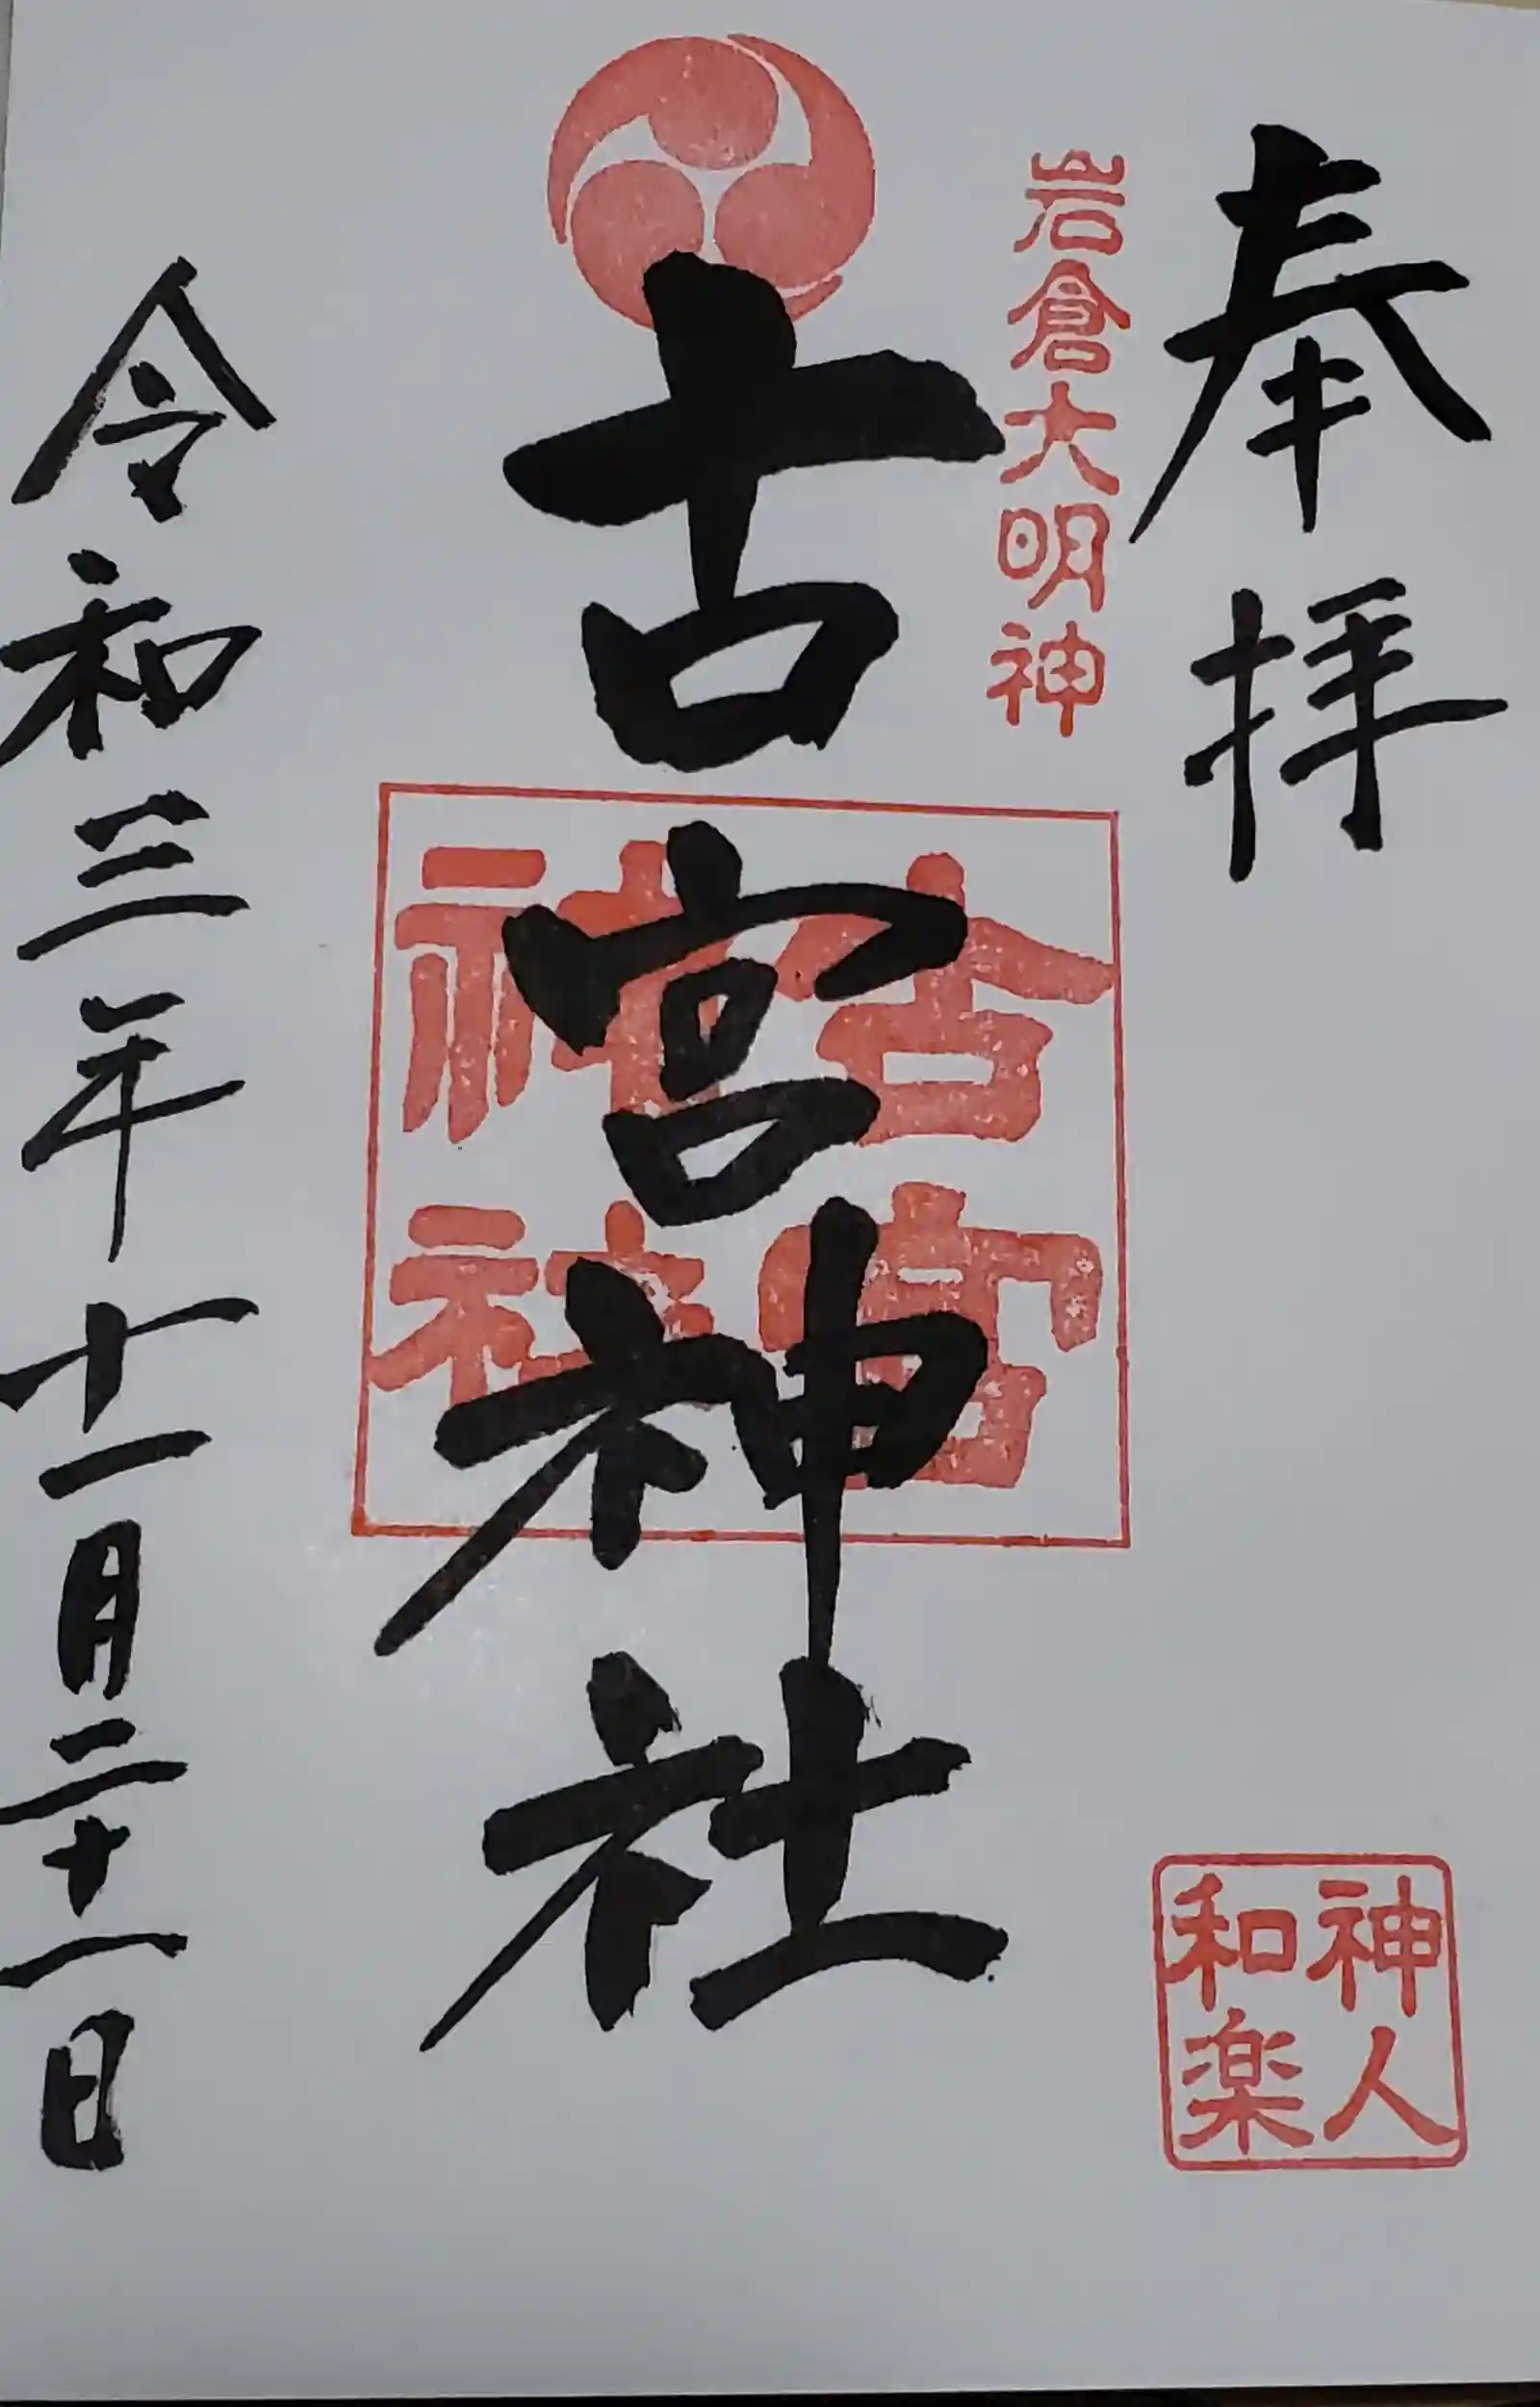 奉拝
岩倉大明神
古宮神社
古宮
神社
令和三年十一月二十一日
神人
和楽